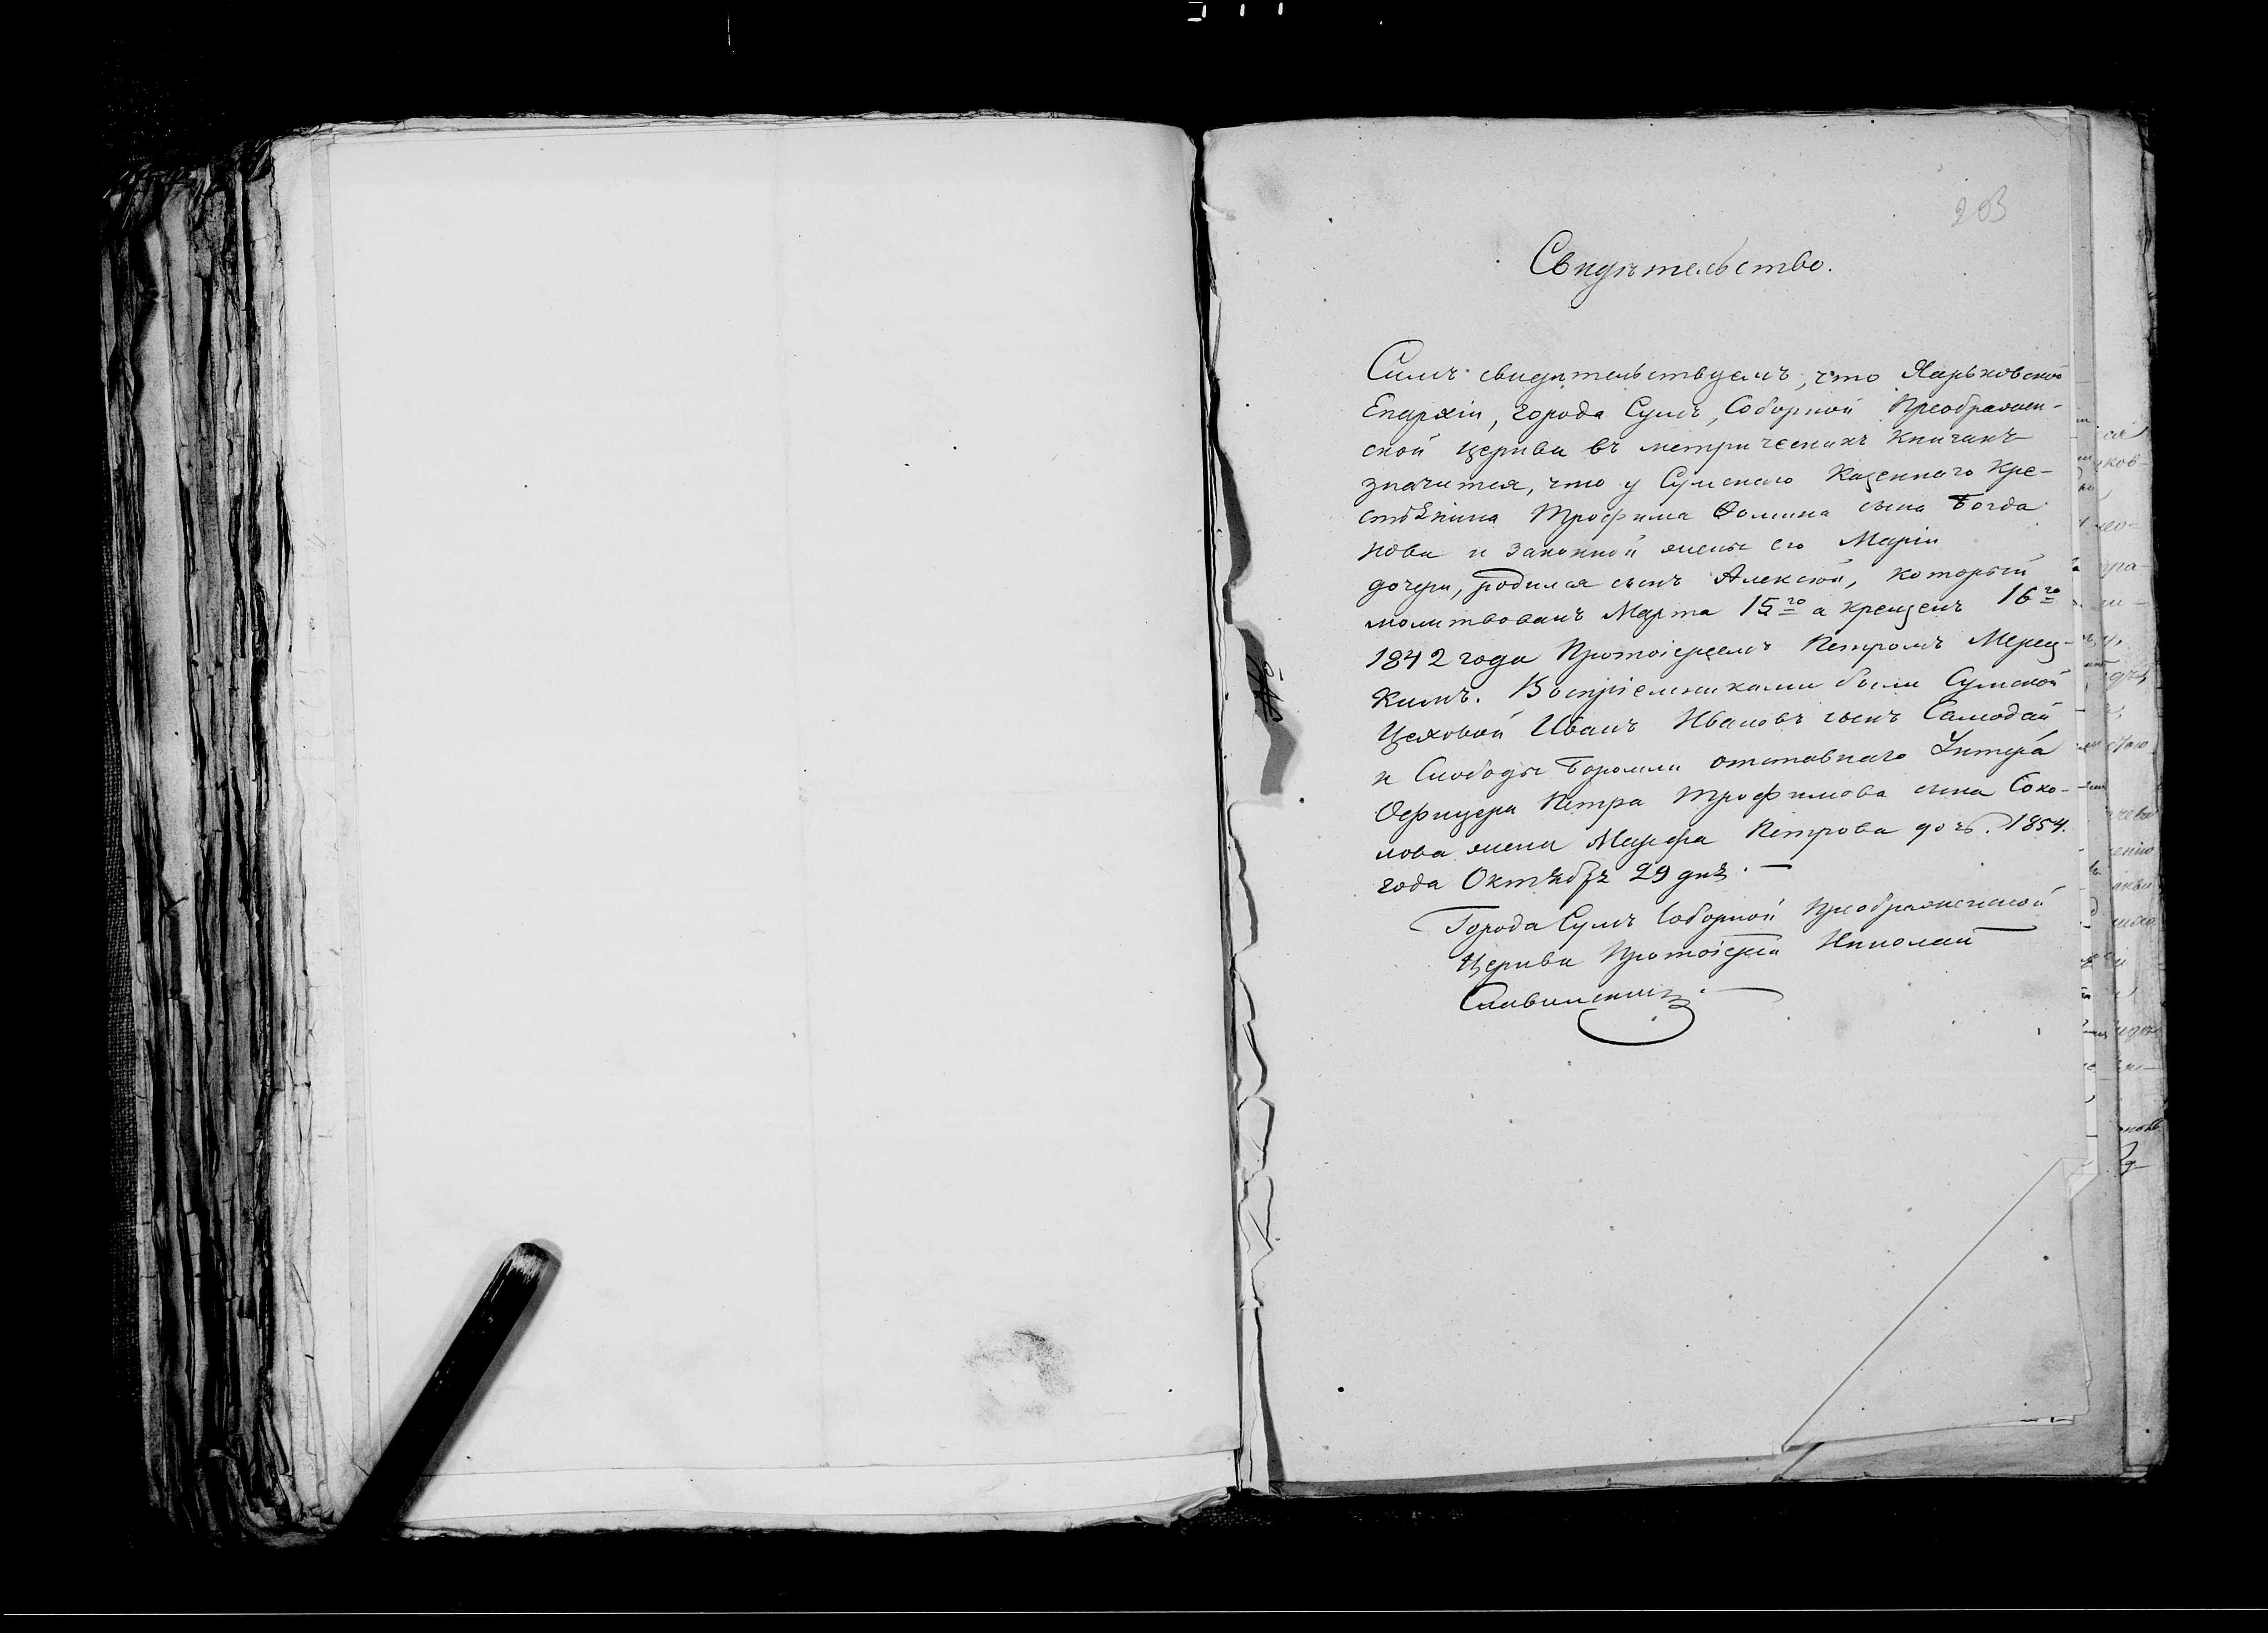 203
Свидѣтельство.
Симъ свидѣтельствуемъ, что Харьковской
Епархіи, города Сумъ, Соборной Преображен-
ской церкви въ метрическихъ книгахъ
значится, что у Сумскаго Казеннаго Кре-
стьянина Трофима Фомина сына Богда
нова и законной жены его Маріи
дочери, родился сынъ Алексѣй, который
молитвованъ Марта 15го а крещенъ 16го
1842 года Протоіереемъ Петромъ Мерец-
кимъ. Воспріемниками были Сумской
Цеховой Иванъ Ивановъ сынъ Самодай
и Слободы Боромли отставнаго Унтера
Офицера Петра Трофимова сына Соко-
лова жена Марфа Петрова дочь. 1854.
года Октября 29 дня. —
Города Сумъ Соборной Преображенской
Церкви Протоіерей Николай